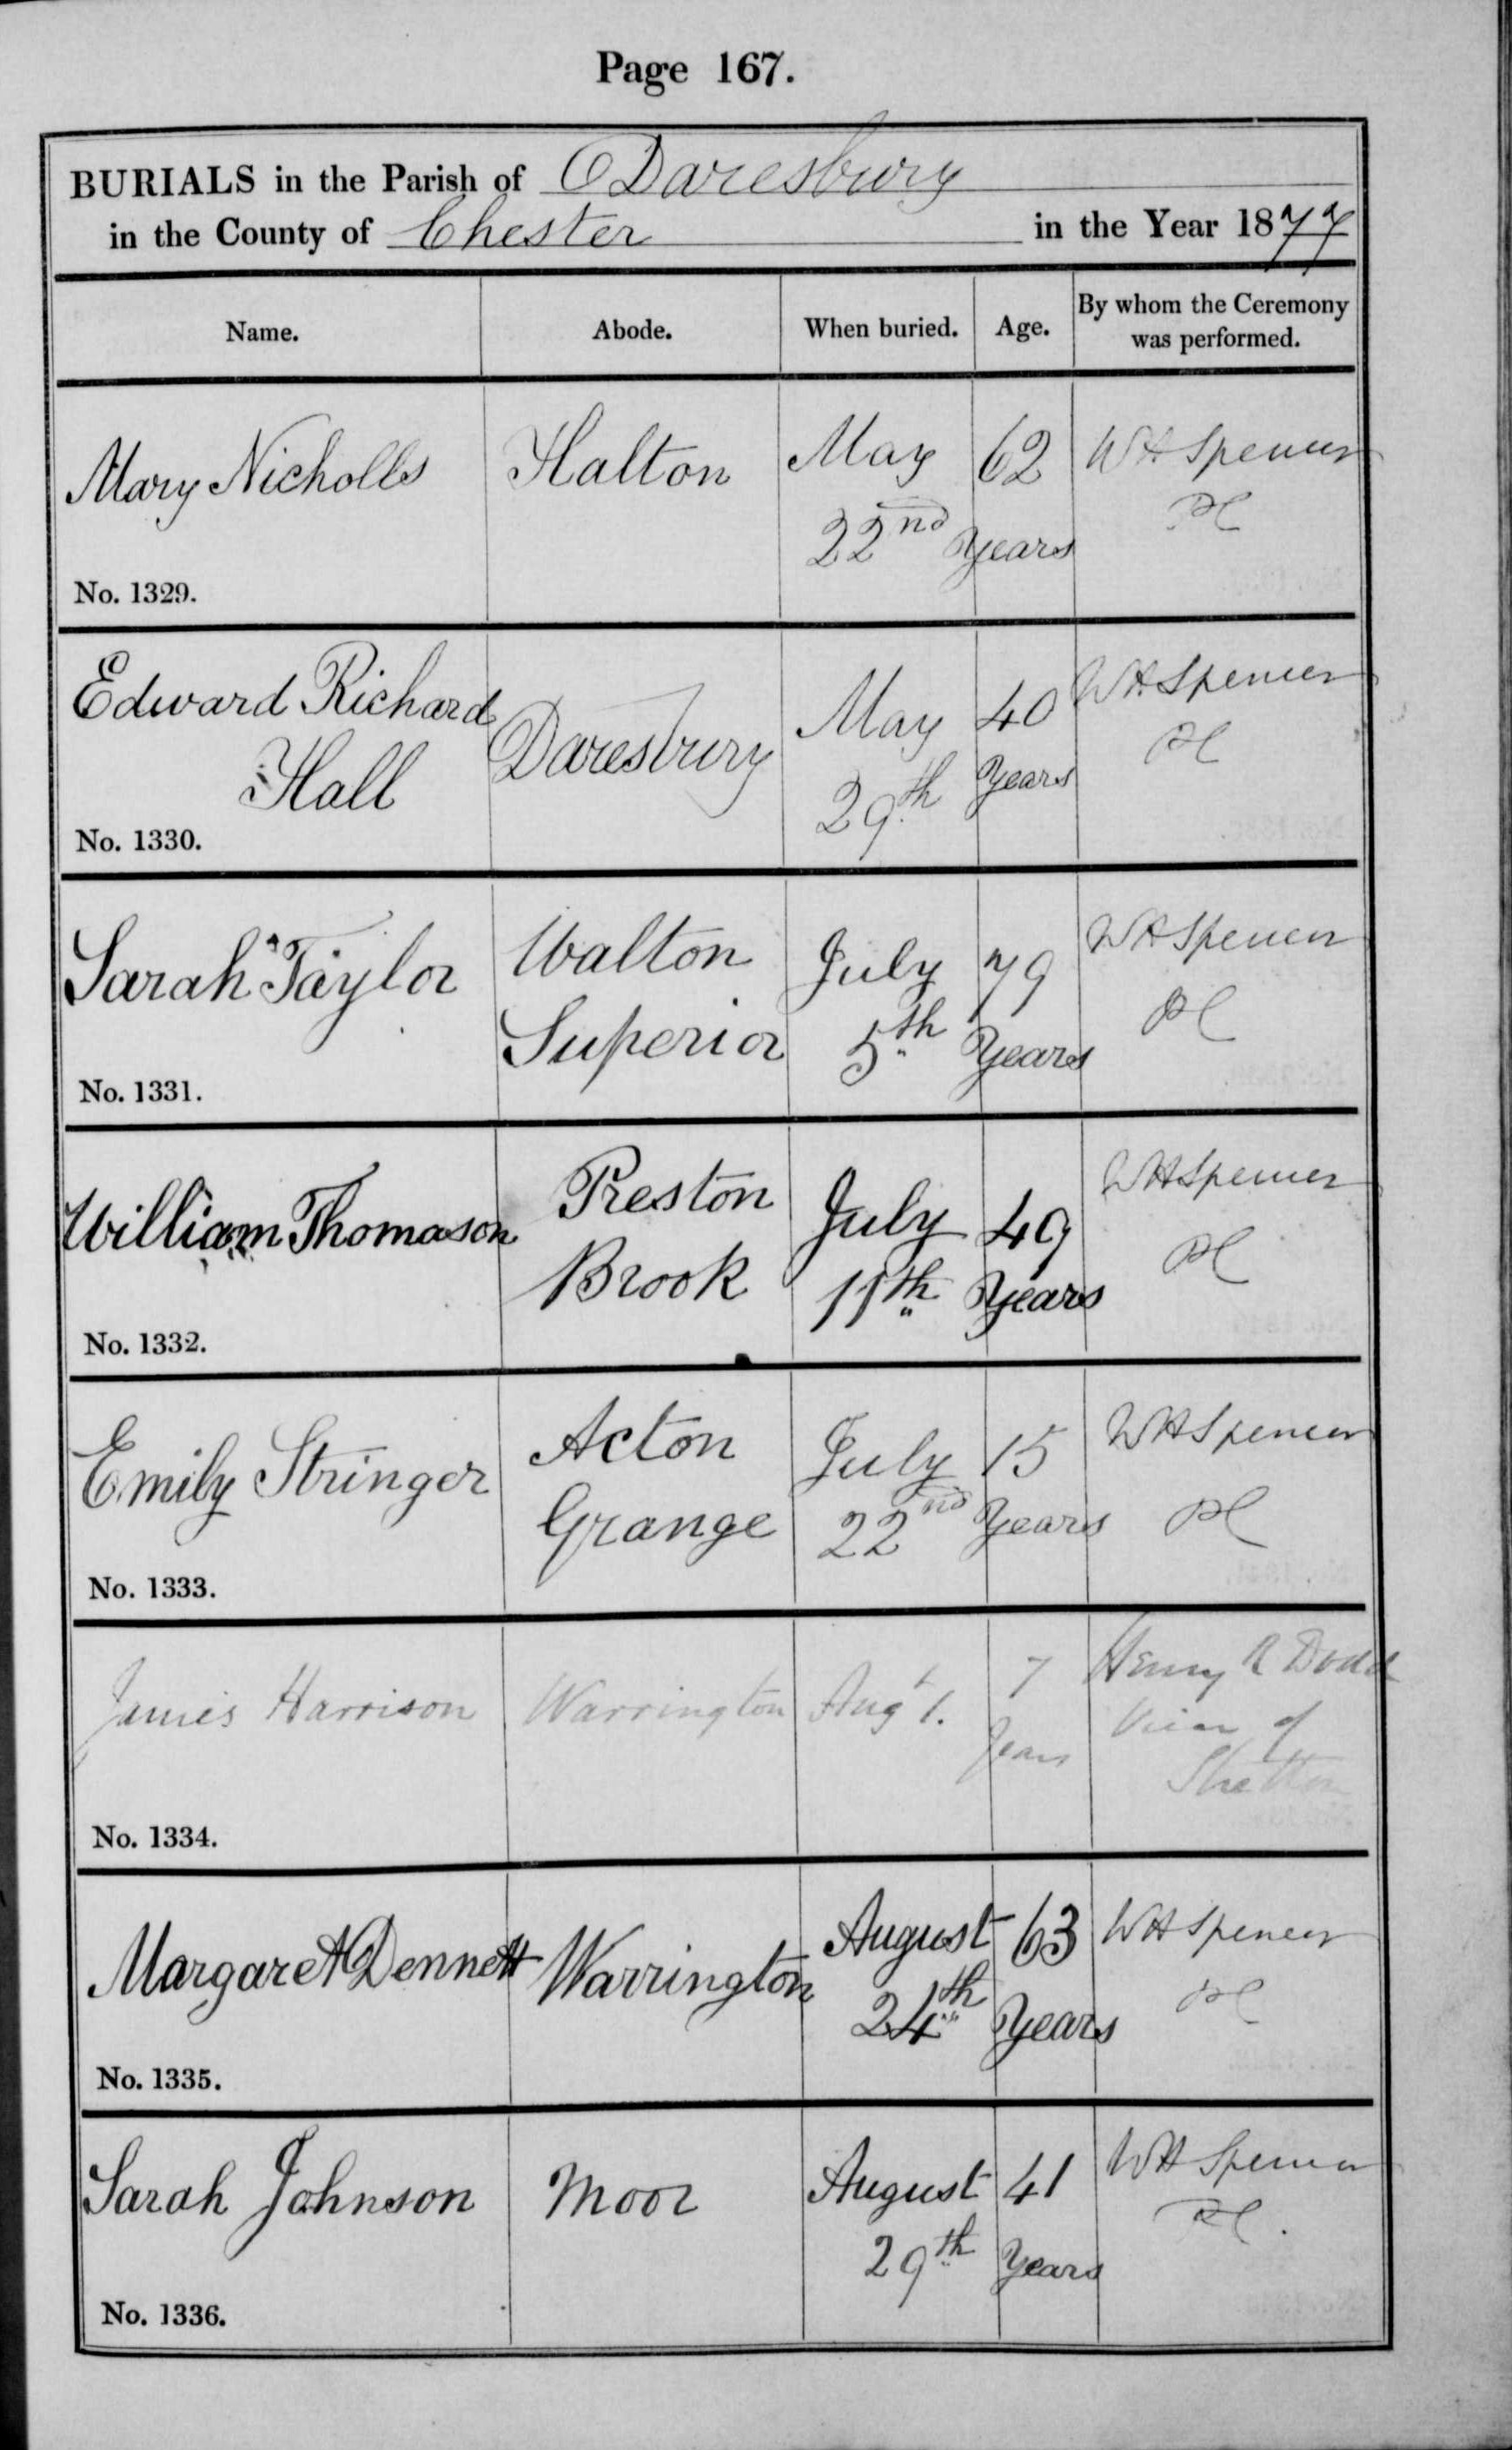 Page 167.
BURIALS in the Parish of Daresbury
in the County of Chester in the Year 1877
Name. Abode. When buried. Age. By whom the Ceremony was performed.
Mary Nicholls Halton May 62 W H Spencer
22nd Years PC
No. 1329.
Edward Richard Daresbury May 40 W H Spencer
Hall 29th Years PC
No. 1330.
Sarah Taylor Walton July 79 W H Spencer
Superior 5th Years PC
No. 1331.
William Thomason Preston July 49 W H Spencer
Brook 11th Years PC
No. 1332.
Emily Stringer Acton July 15 W H Spencer
Grange 22nd Years PC
No. 1333.
James Harrison Warrington Augt 1. 7 Henry R Dodd
Years Vicar of
Stretton
No. 1334.
Margaret Dennett Warrington August 63 W H Spencer
24th Years PC
No. 1335.
Sarah Johnson Moor August 41 W H Spencer
29th Years PC.
No. 1336.